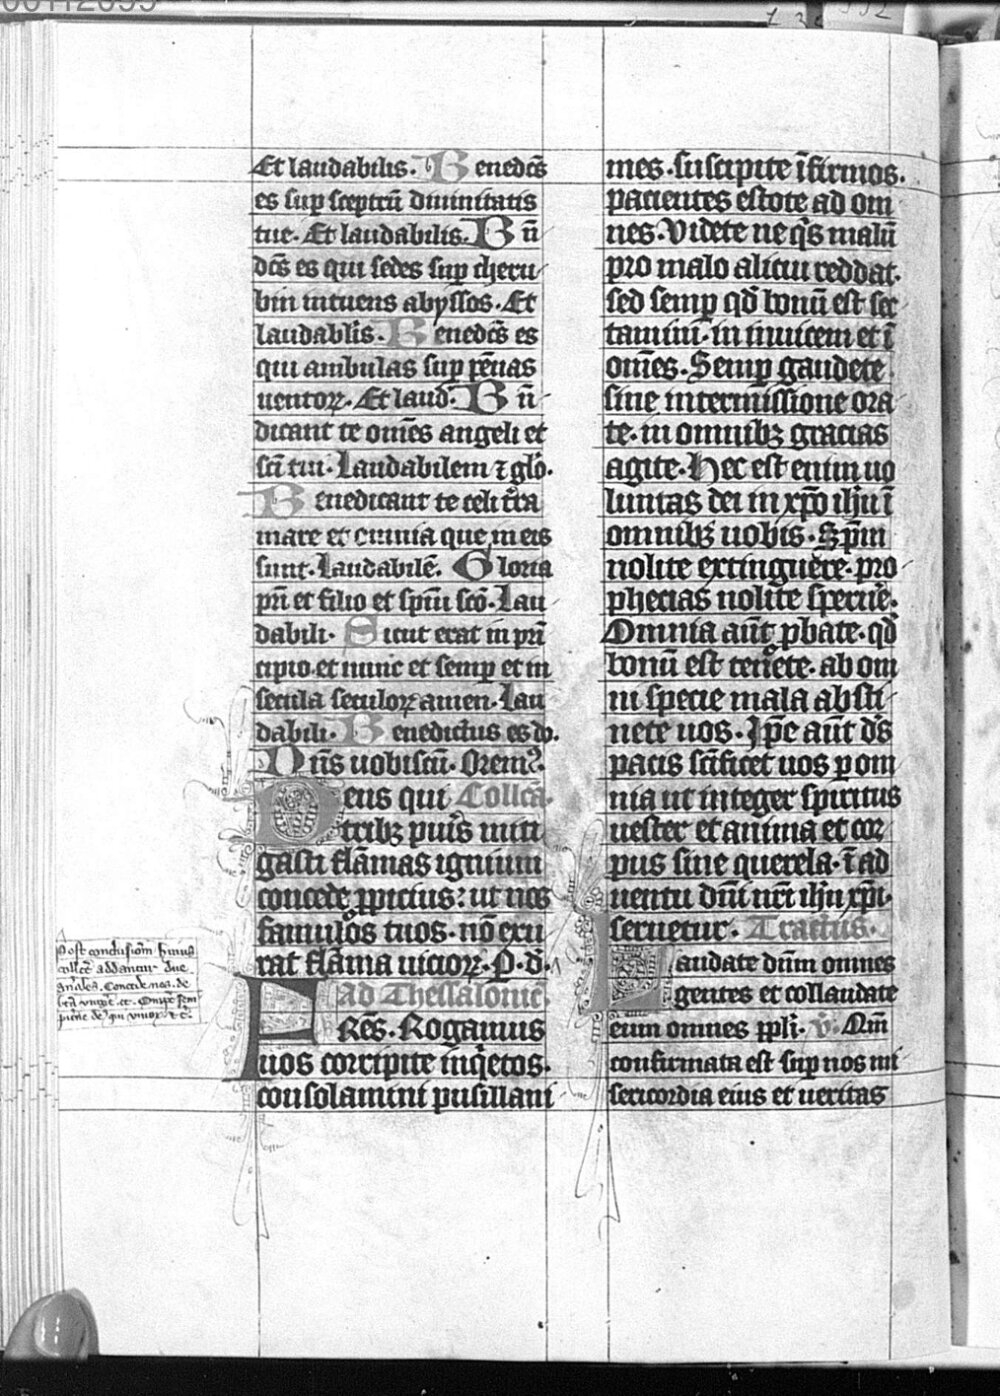 Et laudabilis. Benedc̄s
es sup sceptrū diuinitatis
tue. Et laudabilis. Bn̄
dc̄s es qui sedes sup cheru
bin intuens abyssos. Et
laudabl̄is. Benedc̄s es
qui ambulas sup pēnas
uentoꝝ. Et laud̄. Bn̄
dicant te om̄es angeli et
sc̄i tui. Laudabilem ⁊ glo᷒.
Benedicant te celi t̄ra
mare et omnia que in eis
sunt. Laudabilē. Gloria
pr̄i et filio et spūi sc̄o. Lau
dabili. Sicut erat in prī
cipio et nunc et semp et in
secula seculoꝝ amen. Lau
dabili. Benedictus es do.
Dn̄s uobiscū. Orem᷒.
Deus qui Collc̄a.
tribꝫ puis miti
gasti flām̄as ignium
concede ꝓpicius: ut nos
famulos tuos. nō exu
rat flāma uicioꝝ. P. d̄.
ad Thessalonic̄.
FRēs. Rogamus
uos corripite inq̇etos.
consolamini pusillani
Post conclusiōm huius
collc̄e addantur due
gn̄ales. Concede nos. de
mes. suscipite īfirmos.
pacientes estote ad om
nes. Videte ne q̇s malū
pro malo alicui reddat.
sed semp qd̄ bonū est sec
tamini. in inuicem et ī
om̄es. Semp gaudete
sine intermissione ora
te. in omnibꝫ gracias
agite. Hec est enim uo
luntas dei in xp̄o ih̄u ī
omnibꝫ uobis. Sp̄m
nolite extinguere. pro
phecias nolite spernē.
Omnia aūt ꝓbate. qd̄
bonū est tenete. ab om
ni specie mala absti
nete uos. Ip̄e aūt d̄s
pacis sc̄ificet uos ꝑ om
nia ut integer spiritus
uester et anima et cor
pus sine querela. ī ad
uentu dn̄i nr̄i ih̄u xp̄i.
seruetur. Tractus.
Laudate dn̄m omnes
gentes et collaudate
eum omnes ppl̄i. v̄. Qm̄
confirmata est sup nos mi
sericordia eius et ueritas